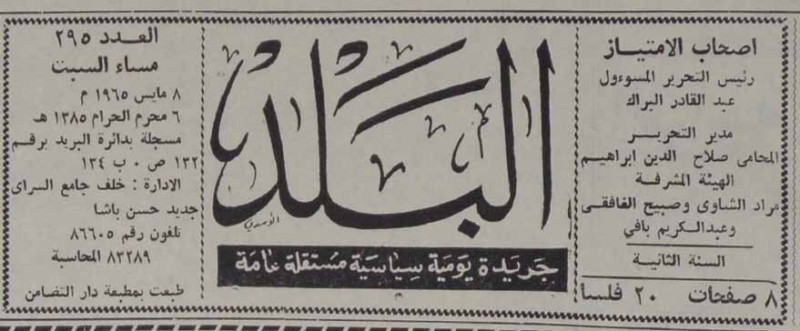 اصحاب الامتياز
رئيس التحرير المسوءول
عبد القادر البراك
مدير التحرير
المحامى صلاح الدين ابراهيم
الهيئة المشرفة
مراد الشاوى وصبيح الغافقى
وعبدالكريم بافي
السنة الثانية
٨ صفحات ٢٠ فلسا
البلد
جريدة يومية سياسية مستقلة عامة
العدد ٢٩٥
مساء السبت
٨ مايس ١٩٦٥ م
٦ محرم الحرام ١٣٨٥ هـ
مسجلة بدائرة البريد برقم
١٣٢ ص ٠ ب ١٣٤
الادارة : خلف جامع السراى
جديد حسن باشا
تلفون رقم ٨٦٦٠٥
٨٣٢٨٩ المحاسبة
طبعت بمطبعة دار التضامن